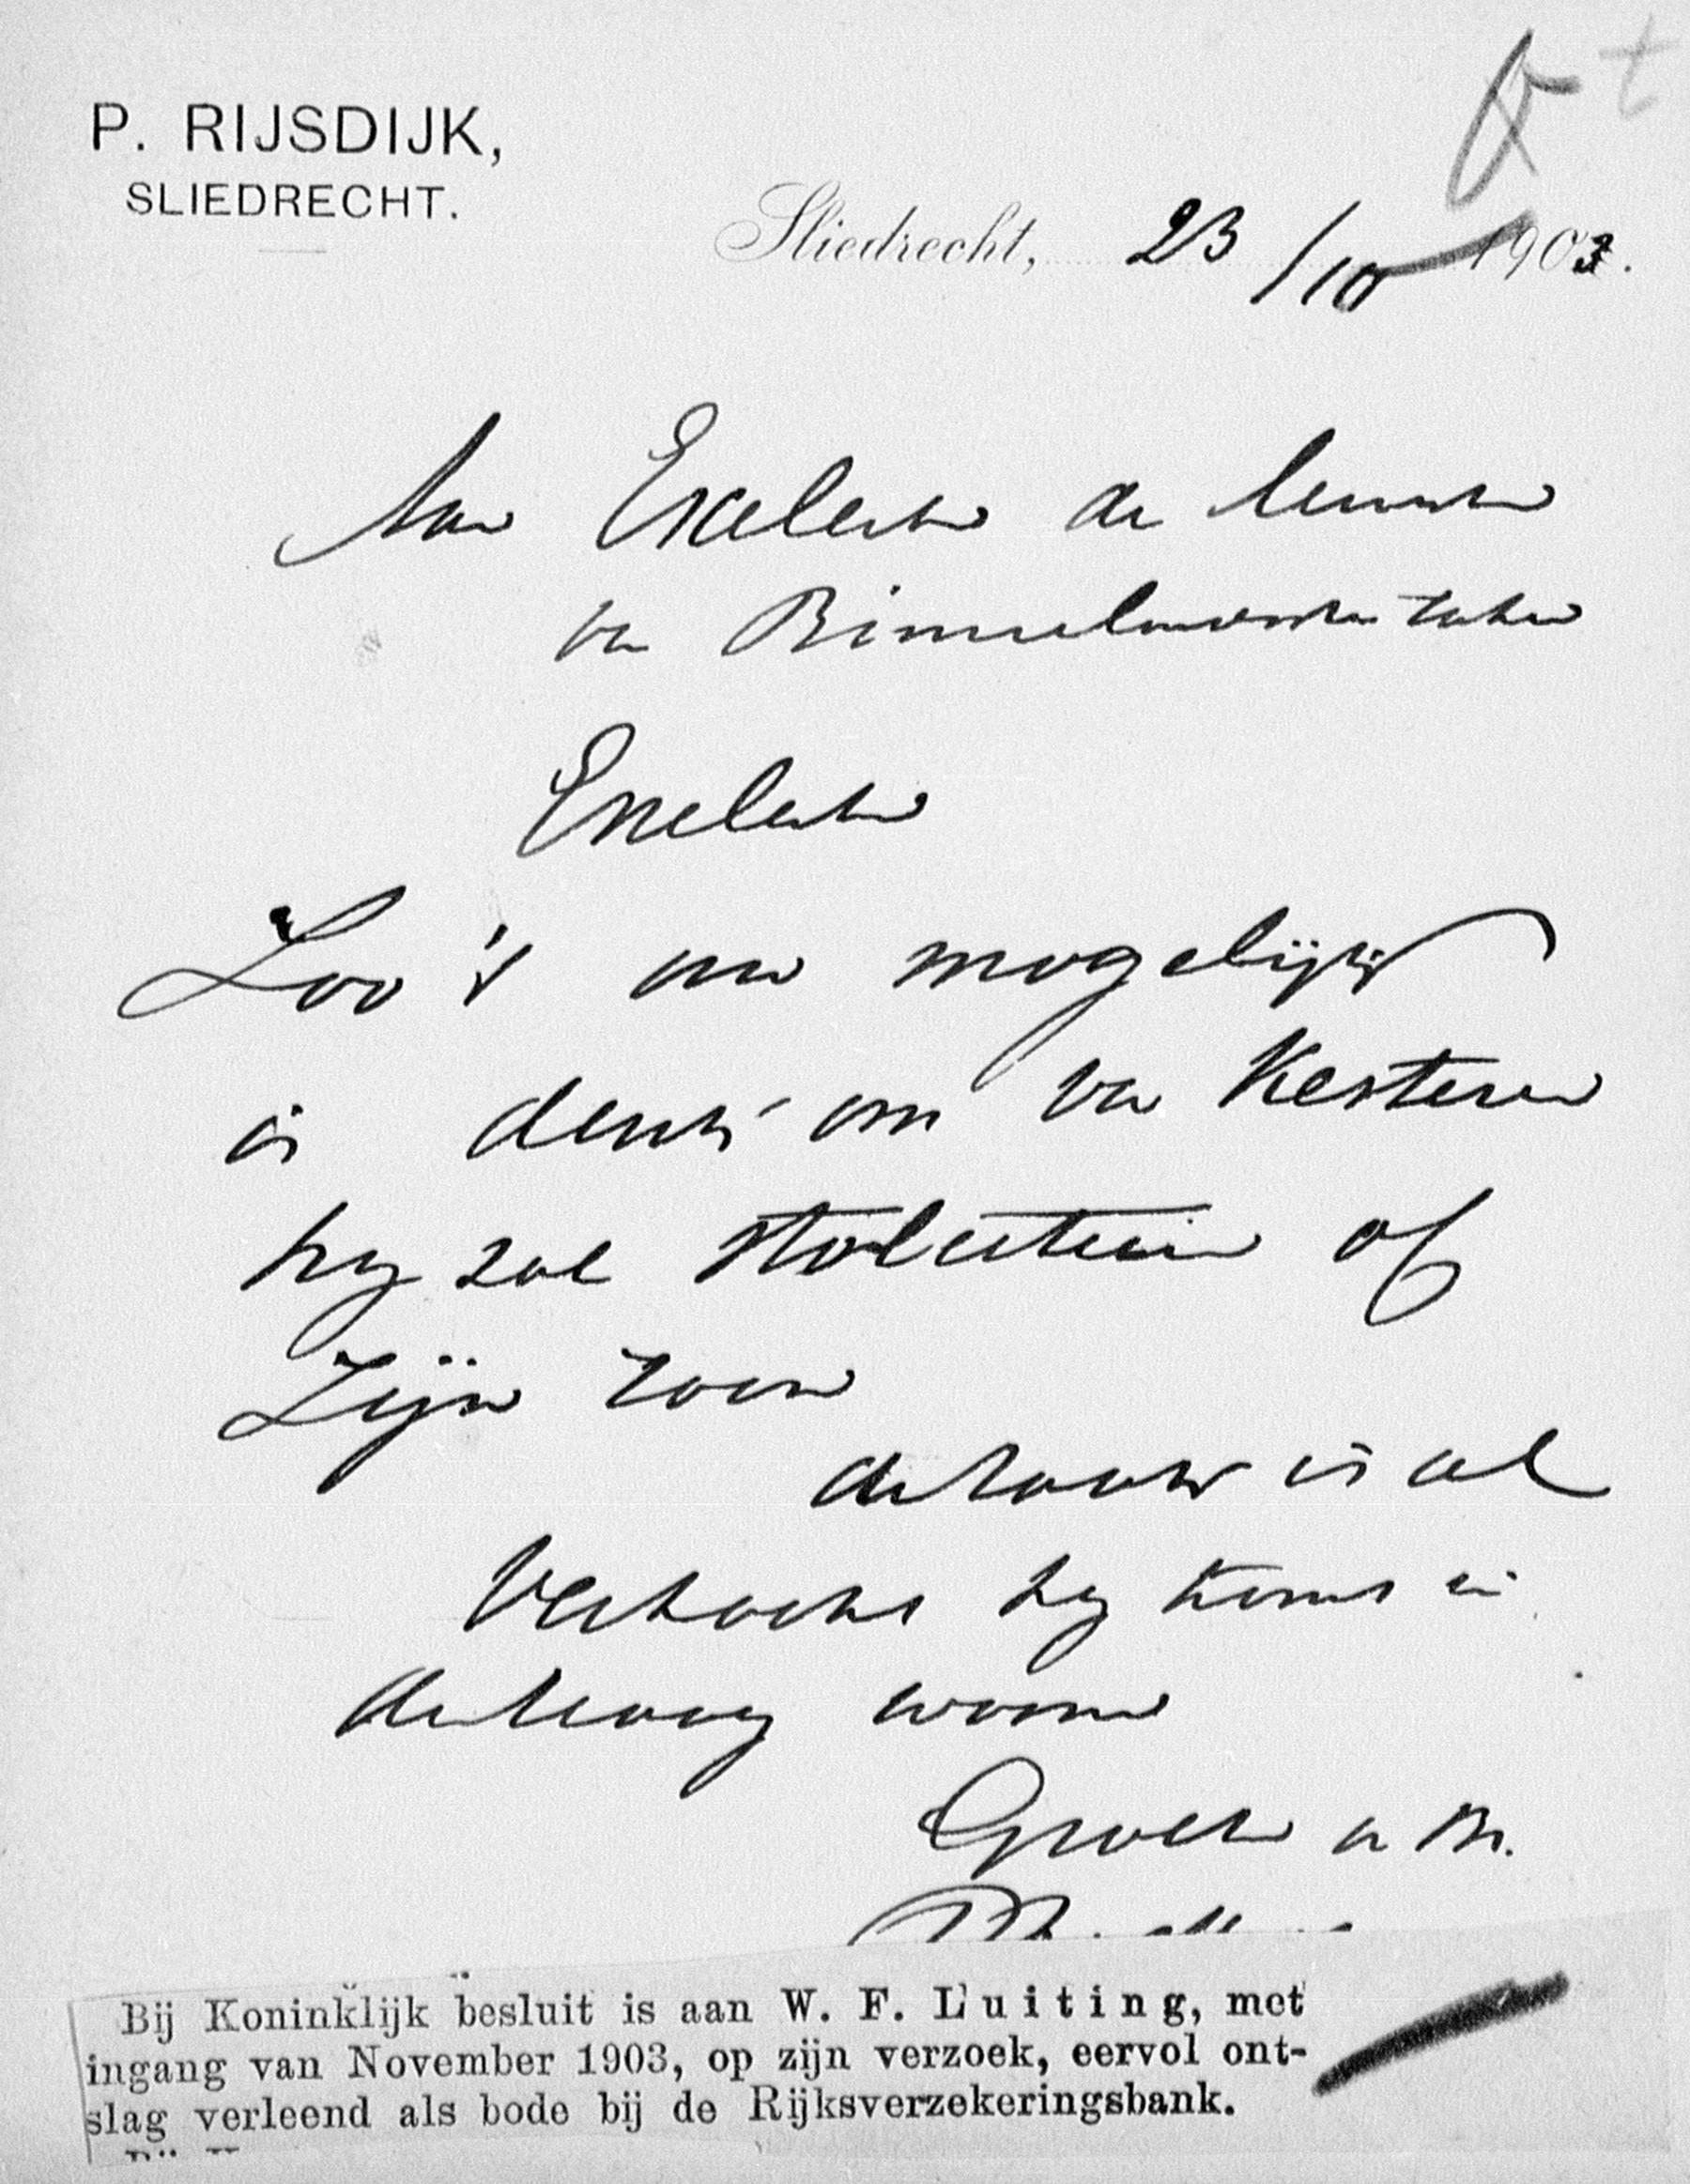 P. RIJSDIJK,
SLIEDRECHT.
Sliedrecht, 23/10 1903.
Aan Excelentie de
van Binnenlandsche zaken
Excelentie
Zoo 't nu mogelijk
is denk om van Kesteren
hij zal of
Zijn zoon
de zaak is al
Verkocht hij komt in
den Haag wonen
Groete
Bij Koninklijk besluit is aan W. F. Luiting, met
ingang van November 1903, op zijn verzoek, eervol ont-
slag verleend als bode bij de Rijksverzekeringsbank.